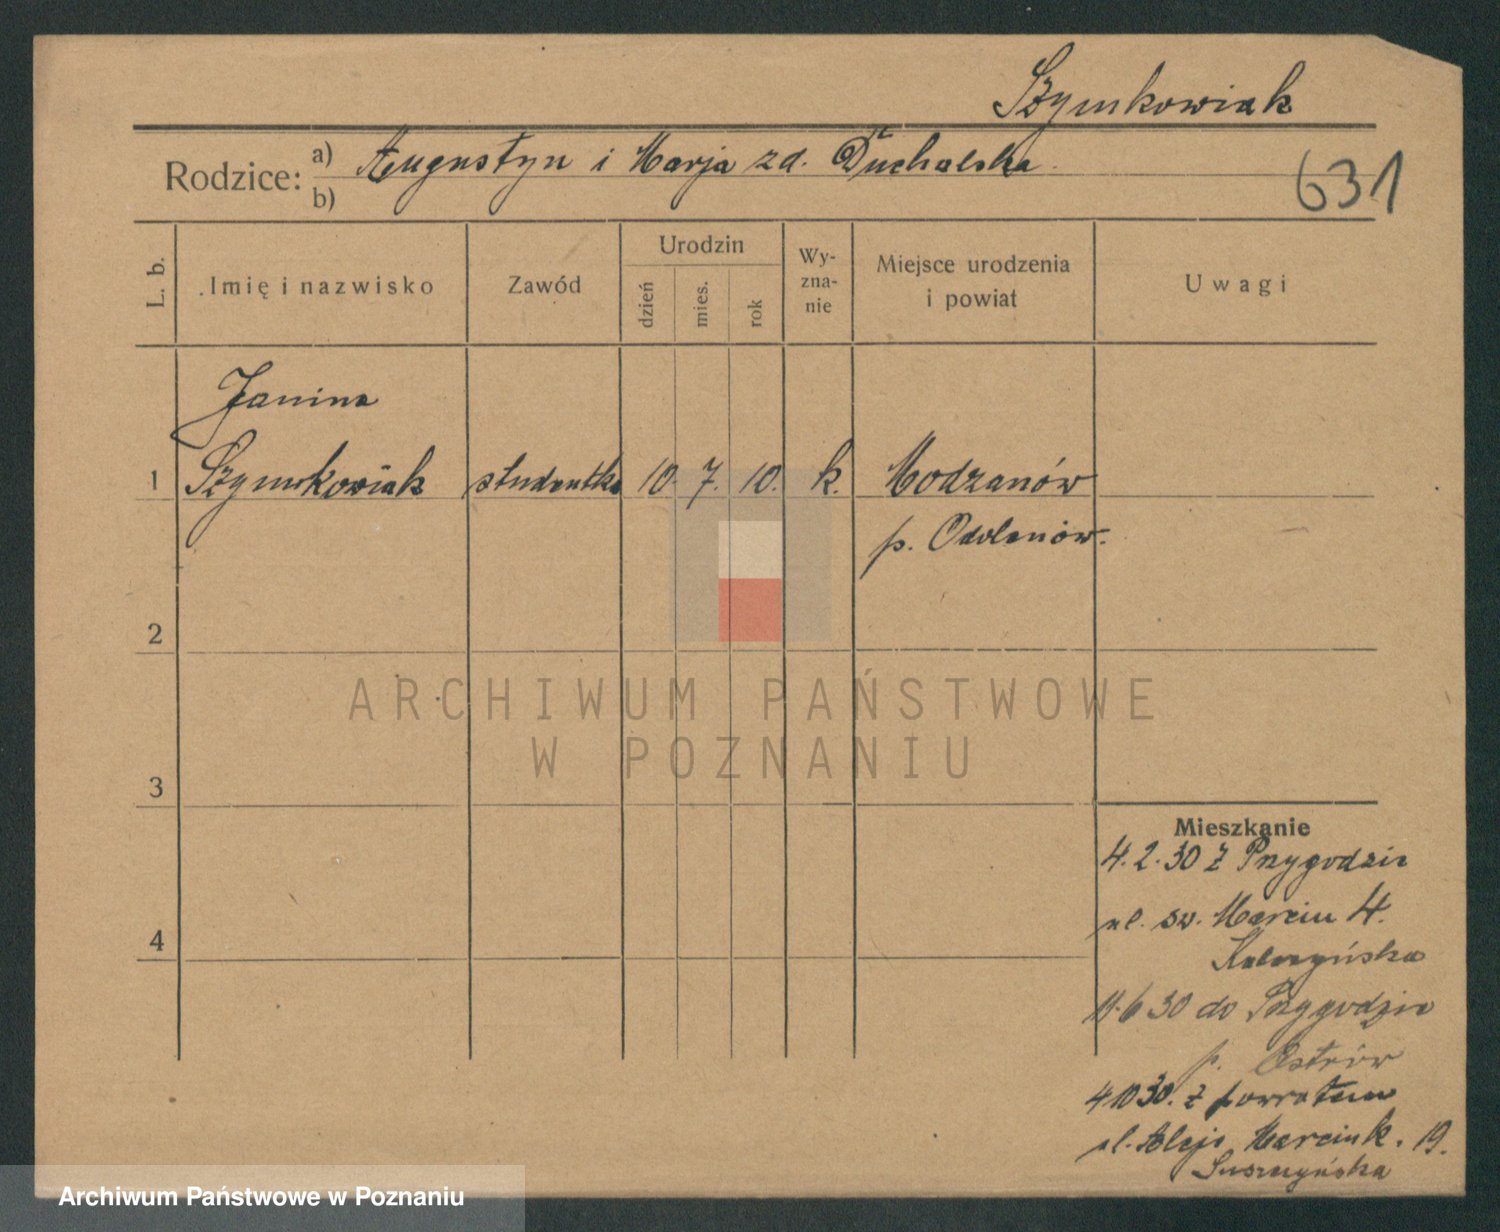 Szymkowiak
Rodzice: a) Augustyn i Marja zd. Duchalska.
b)
631
L. b.
Imię i nazwisko
Zawód
Urodzin
dzień
mies.
rok
Wy-
zna-
nie
Miejsce urodzenia
i powiat
Uwagi
Janina
1 Szymkowiak studentka 10. 7. 10. k. Modzanów
p. Odolanów.
2
ARCHIWUM PAŃSTWOWE
W POZNANIU
3
Mieszkanie
4.2.30 z Przygodzic
ul. św. Marcin 4.
4
11.6 30 do Przygodzic
p. Ostrów
4 10 30. z powrotem
ul. Aleje Marcink. 19.
Suszczyńska
Archiwum Państwowe w Poznaniu